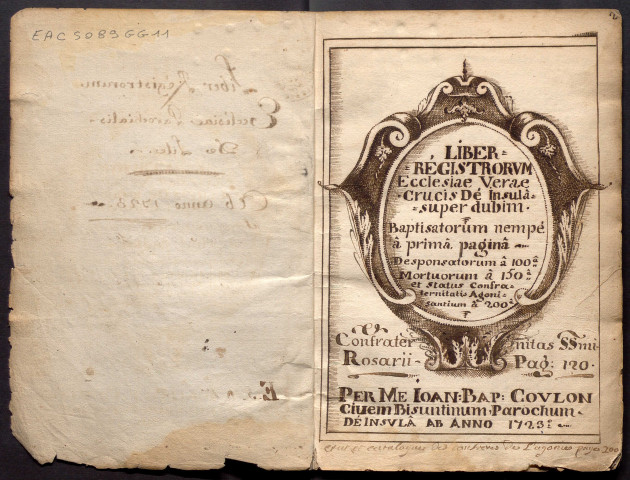 EAC 5089 GG 11
Liber Registrorum
Ecclesiae Parochialis
De
Ab anno 1723.
LIBER
REGISTRORVM
Ecclesiae Verae
Crucis De Insulâ
super dubim.
Baptisatorum nempé
â primâ paginâ
Desponsatorum â 100.ª
Mortuorum â 150.ª
et Status Confra=
ternitatis Agoni=
santium â 200.ª
Confrater nitas SSmi
Rosarii - Pag: 120.
PER ME IOAN: BAP: COVLON
Civem Bisuntinum Parochum
DE INSVLÂ AB ANNO 1723.º
catalogue des confreres de l'agonie page 200